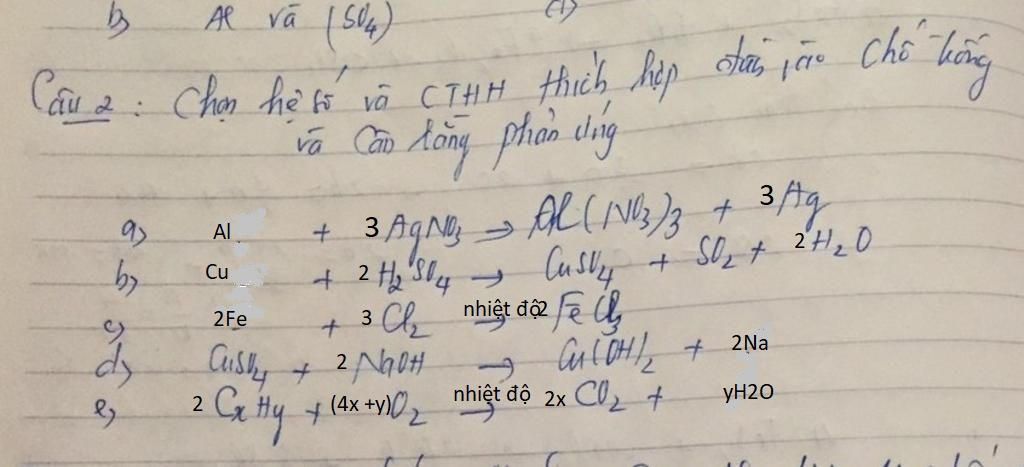 b) Al và (SO4) (1)
Câu 2: Chọn hệ số và CTHH thích hợp chỗ
và cân bằng phản ứng
a) Al + 3 AgNO3 → Al(NO3)3 + 3 Ag
b) Cu + 2 H2SO4 → CuSO4 + SO2 + 2 H2O
c) 2Fe + 3 Cl2 nhiệt độ → 2 FeCl3
d) CuSO4 + 2 NaOH → Cu(OH)2 + 2Na
e) 2 CxHy + (4x +y) O2 nhiệt độ → 2x CO2 + yH2O